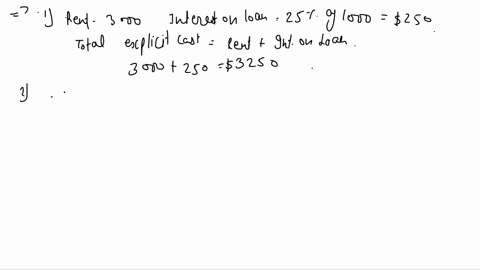 => 1) Rent. 3000 Interest on loan = 25% of 1000 = $250.
Total explicit cost = Rent + Int. on Loan.
3000 + 250 = $3250.
2)